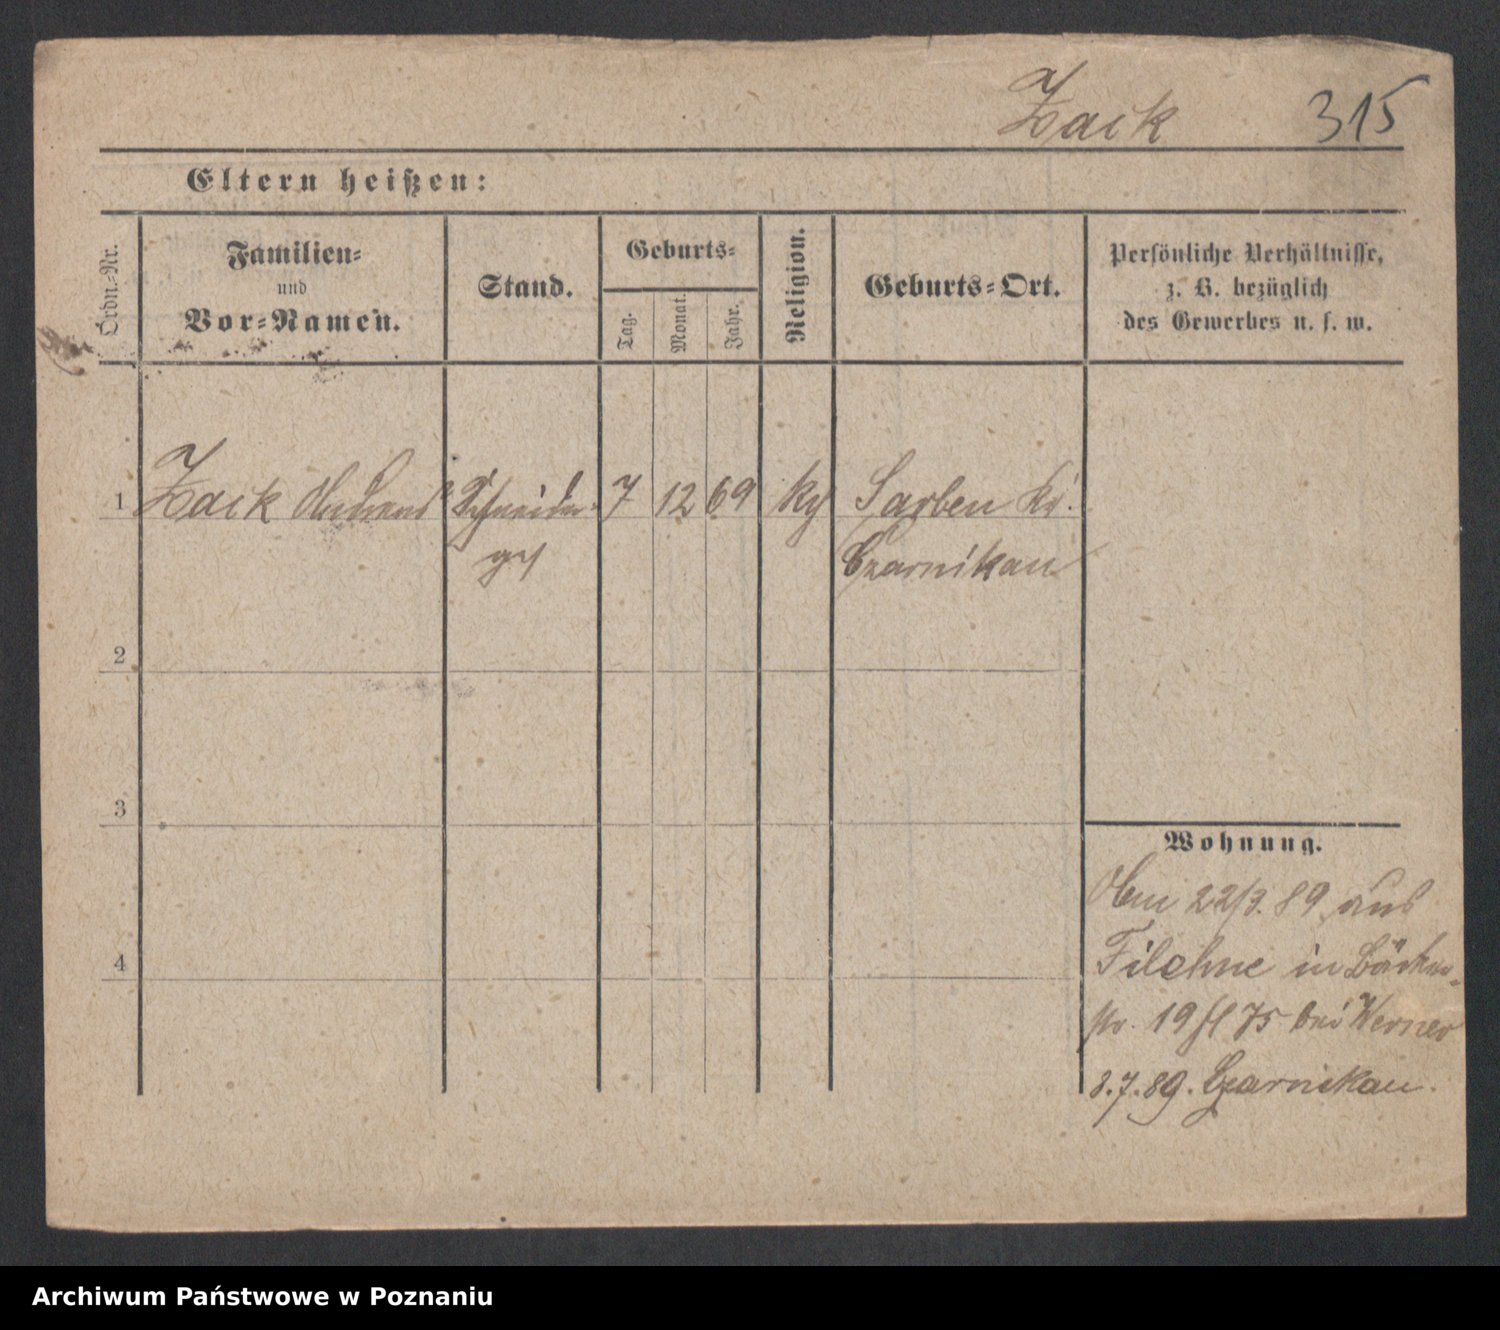 Zack 315
Eltern heißen:
Ordn.-Nr.
Familien-
und
Vor-Namen.
Stand.
Geburts-
Tag.
Monat.
Jahr.
Religion.
Geburts-Ort.
Persönliche Verhältnisse,
z. B. bezüglich
des Gewerbes u. s. w.
1 Zack Andreas Schneider- 7 12 69 Sarben Kr.
ges Czarnikau
2
3
4
Wohnung.
22/3. 89 aus
Filehne in Bäcker-
str. 19 75 bei Werner
3.7.89. Czarnikau.
Archiwum Państwowe w Poznaniu